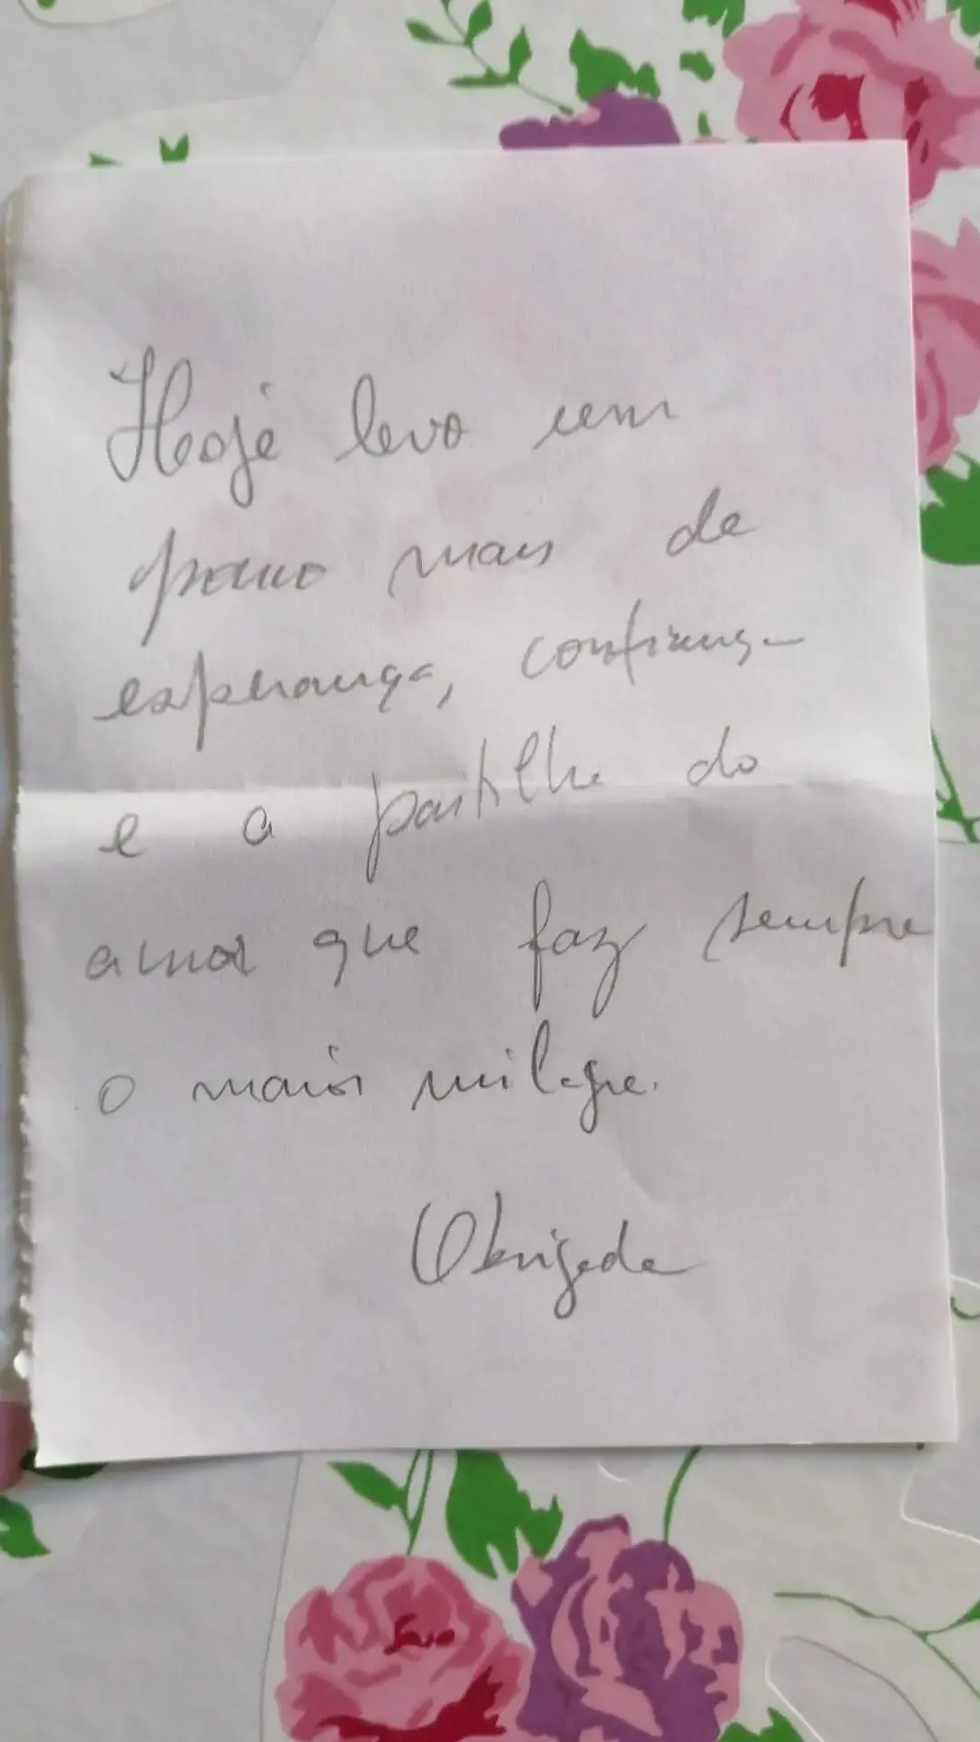 Hoje levo um
pouco mais de
esperança, confiança
e a partilha do
amor que faz sempre
o maior milagre.
Obrigada